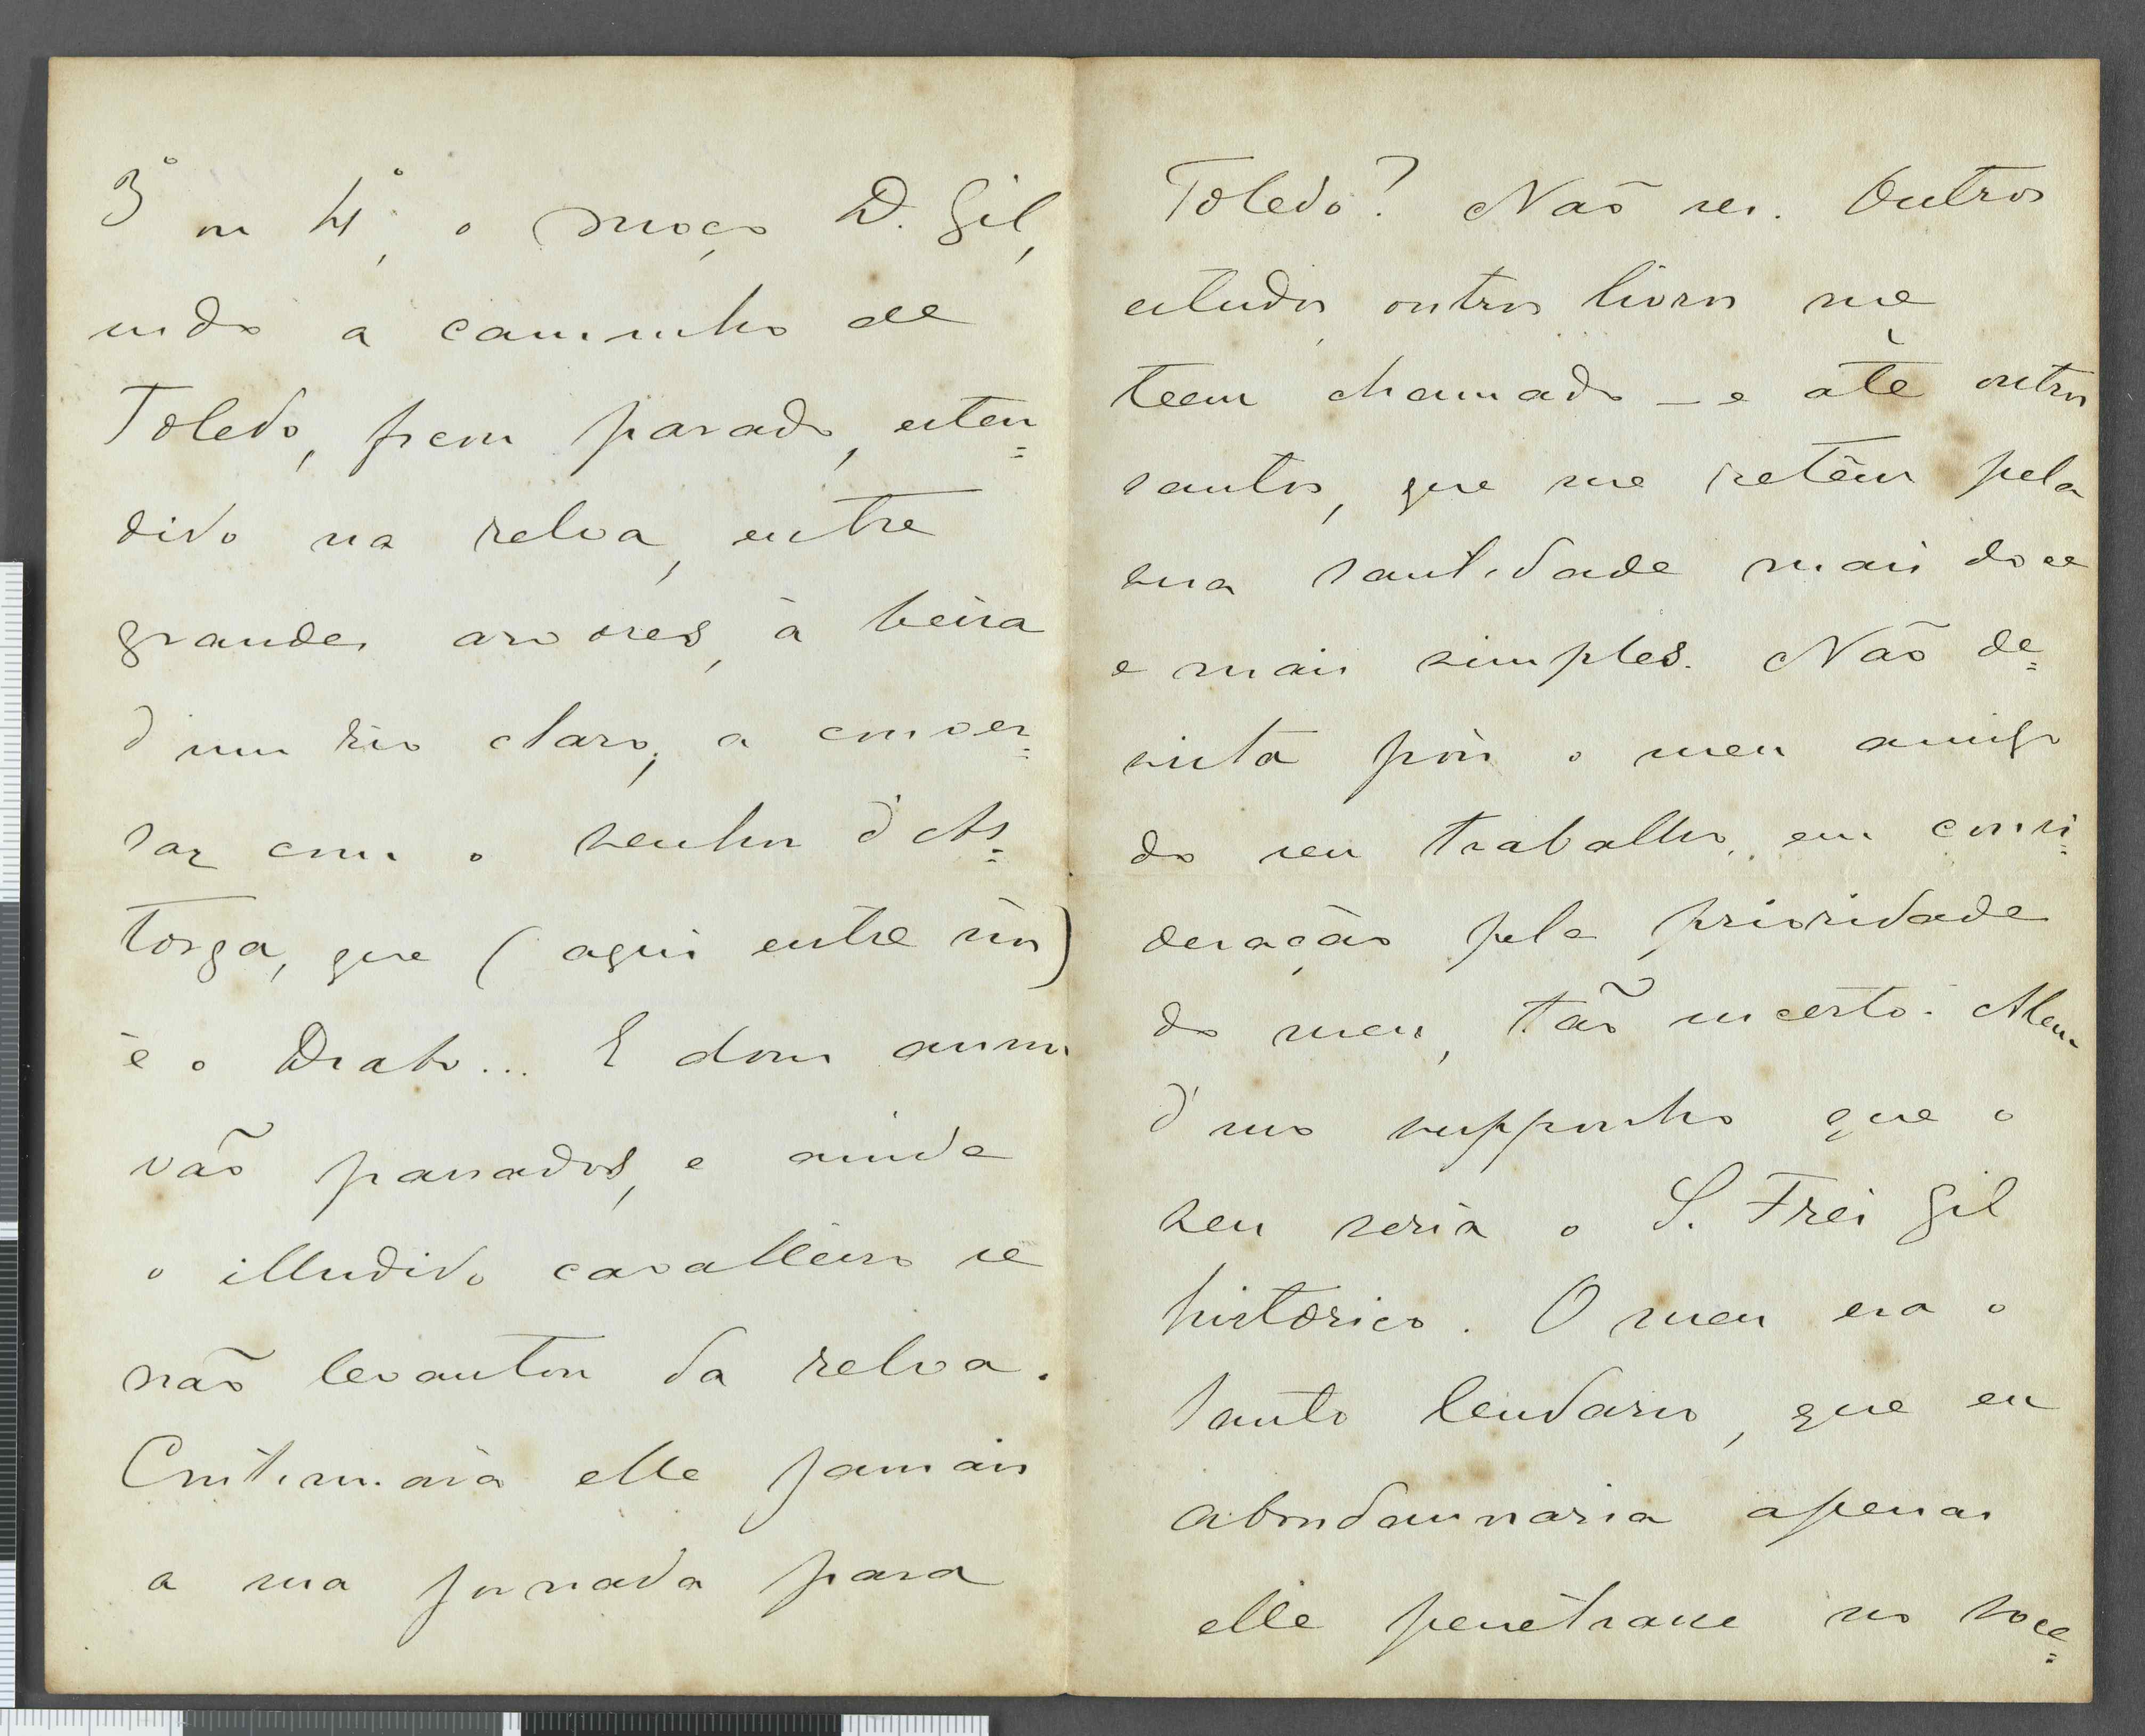 3º ou 4º, o moço D. Gil,
indo a caminho de
Toledo, ficou parado, esten=
dido na relva, entre
grandes arvores, à beira
d'um rio claro, a conver=
sar com o senhor d'As=
torga, que (aqui entre nós)
é o Diabo... E dous annos
vão passados, e ainda
o illudido cavalleiro se
não levantou da relva.
Continuará elle jamais
a sua jornada para
Toledo? Não sei. Outros
estudos, outros livros me
teem chamado – e até outros
santos, que me retêm pela
sua santidade mais doce
e mais simples. Não de=
sista pois o meu amigo
do seu trabalho, em consi=
deração pela prioridade
do meu, tão incerto. Alem
d'isso supponho que o
seu seria o S. Frei Gil
historico. O meu era o
Santo lendario, que eu
abondamnaria apenas
elle penetrasse no soce=